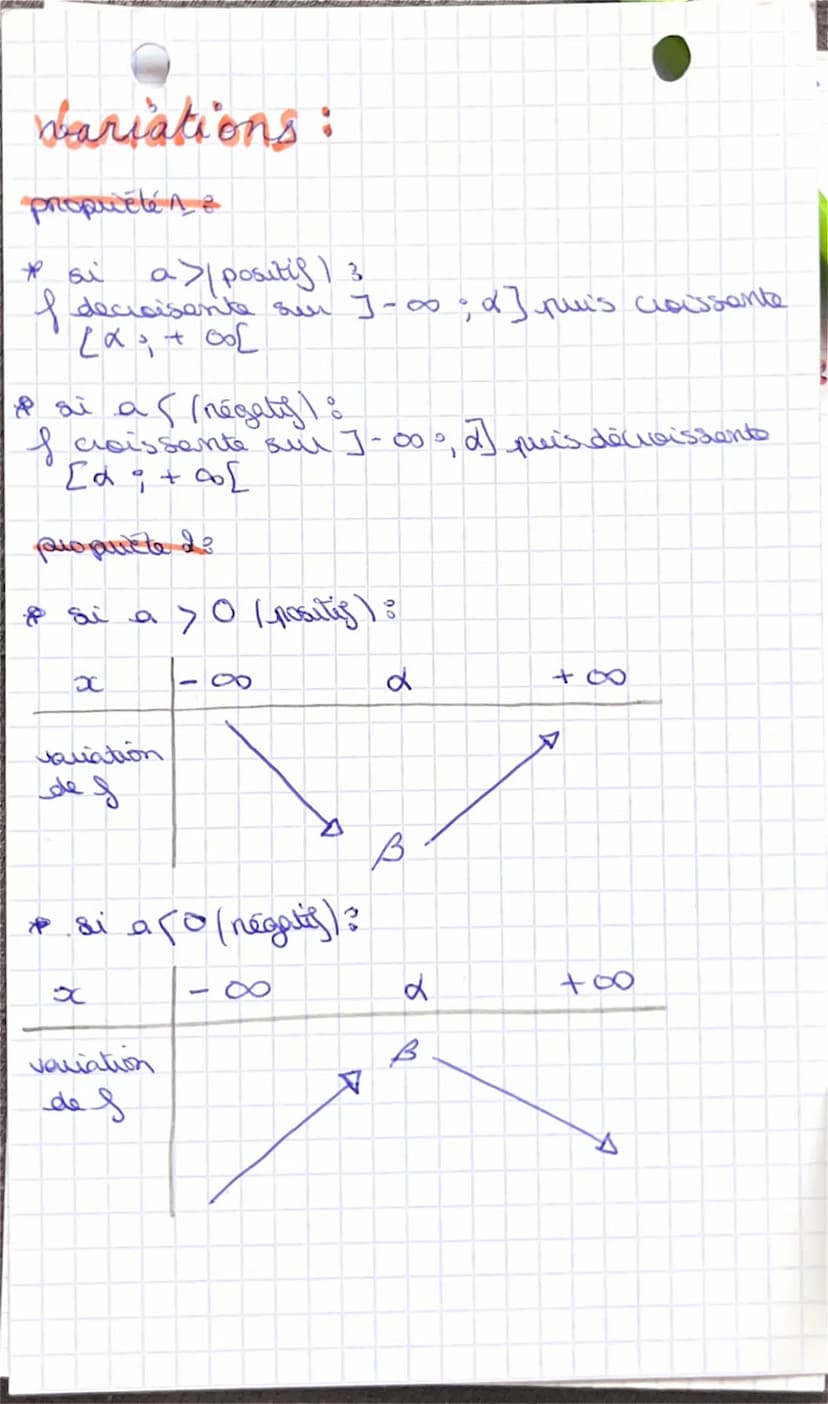 variations :
propriété 1 :
* si a > (positif) :
f decroisante sur ]-∞ ; α] puis croissante
[α ; + ∞[
* si a < (négatif) :
f croissante sur ]-∞ ; α] puis décroissante
[α ; + ∞[
propriéte 2 :
* si a > 0 (positif) :
x - ∞ α + ∞
variation
de f
β
* si a < 0 (négatif) :
x - ∞ α + ∞
β
variation
de f